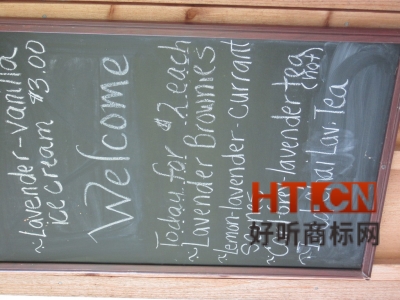 ~Lavender-vanilla
ice cream $3.00
Welcome
Today for $2 each
~Lavender Brownies
~Lemon-lavender-currant
-lavender tea
(hot)
Lav. Tea
HT.CN
好听商标网